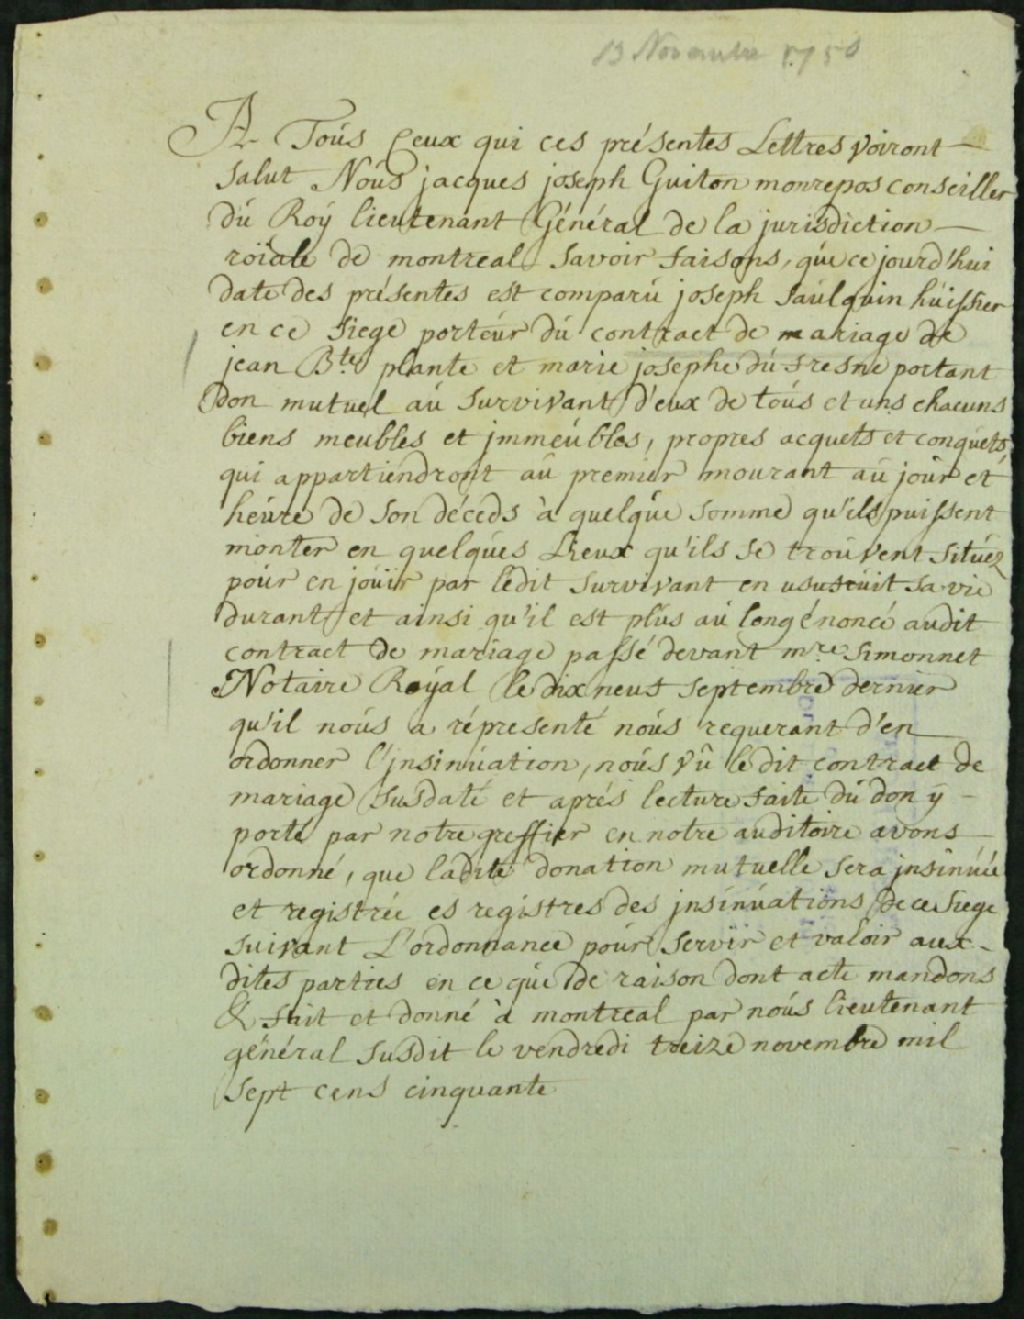 13 Novembre 1750
A Tous Ceux qui ces présentes Lettres Voiront
Salut Nous jacques joseph Guiton monrepos conseiller
du Roÿ lieutenant Général de la jurisdiction
roïale de montreal Savoir faisons, que ce jourd'hui
date des présentes est comparu joseph Saulquin huissier
en ce siege porteur du contract de mariage de
jean Bte plante et marie josephe du fresne portant
Don mutuel au Survivant d'eux de tous et uns chacuns
biens meubles et jmmeubles, propres acquets et conquets
qui appartiendront au premier mourant au jour et
heure de son décéds à quelque somme qu'ils puissent
monter en quelques Lieux qu'ils se trouvent situéz
pour en jouir par ledit Survivant en usufruit sa vie
durant et ainsi qu'il est plus au long énoncé audit
contract de mariage passé devant mre Simonnet
Notaire Roÿal le dix neuf septembre dernier
qu'il nous a réprésenté nous requerant d'en
ordonner l'jnsinuation, nous Vû le dit contract de
mariage susdaté et aprés lecture faite du don ÿ
porté par notre greffier en notre auditoire avons
ordonné, que ladite donation mutuelle sera jnsinuée
et registrée es registres des jnsinuations de ce siege
suivant L'ordonnance pour servir et valoir aux-
dites parties en ce que de raison dont acte mandons
& fait et donné à montreal par nous lieutenant
général susdit le vendredi treize novembre mil
sept cens cinquante